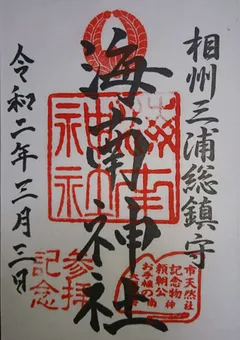 相州三浦総鎮守
海南神社
令和二年三月三日
参拝
記念
市天然
記念物
頼朝公
お手植の